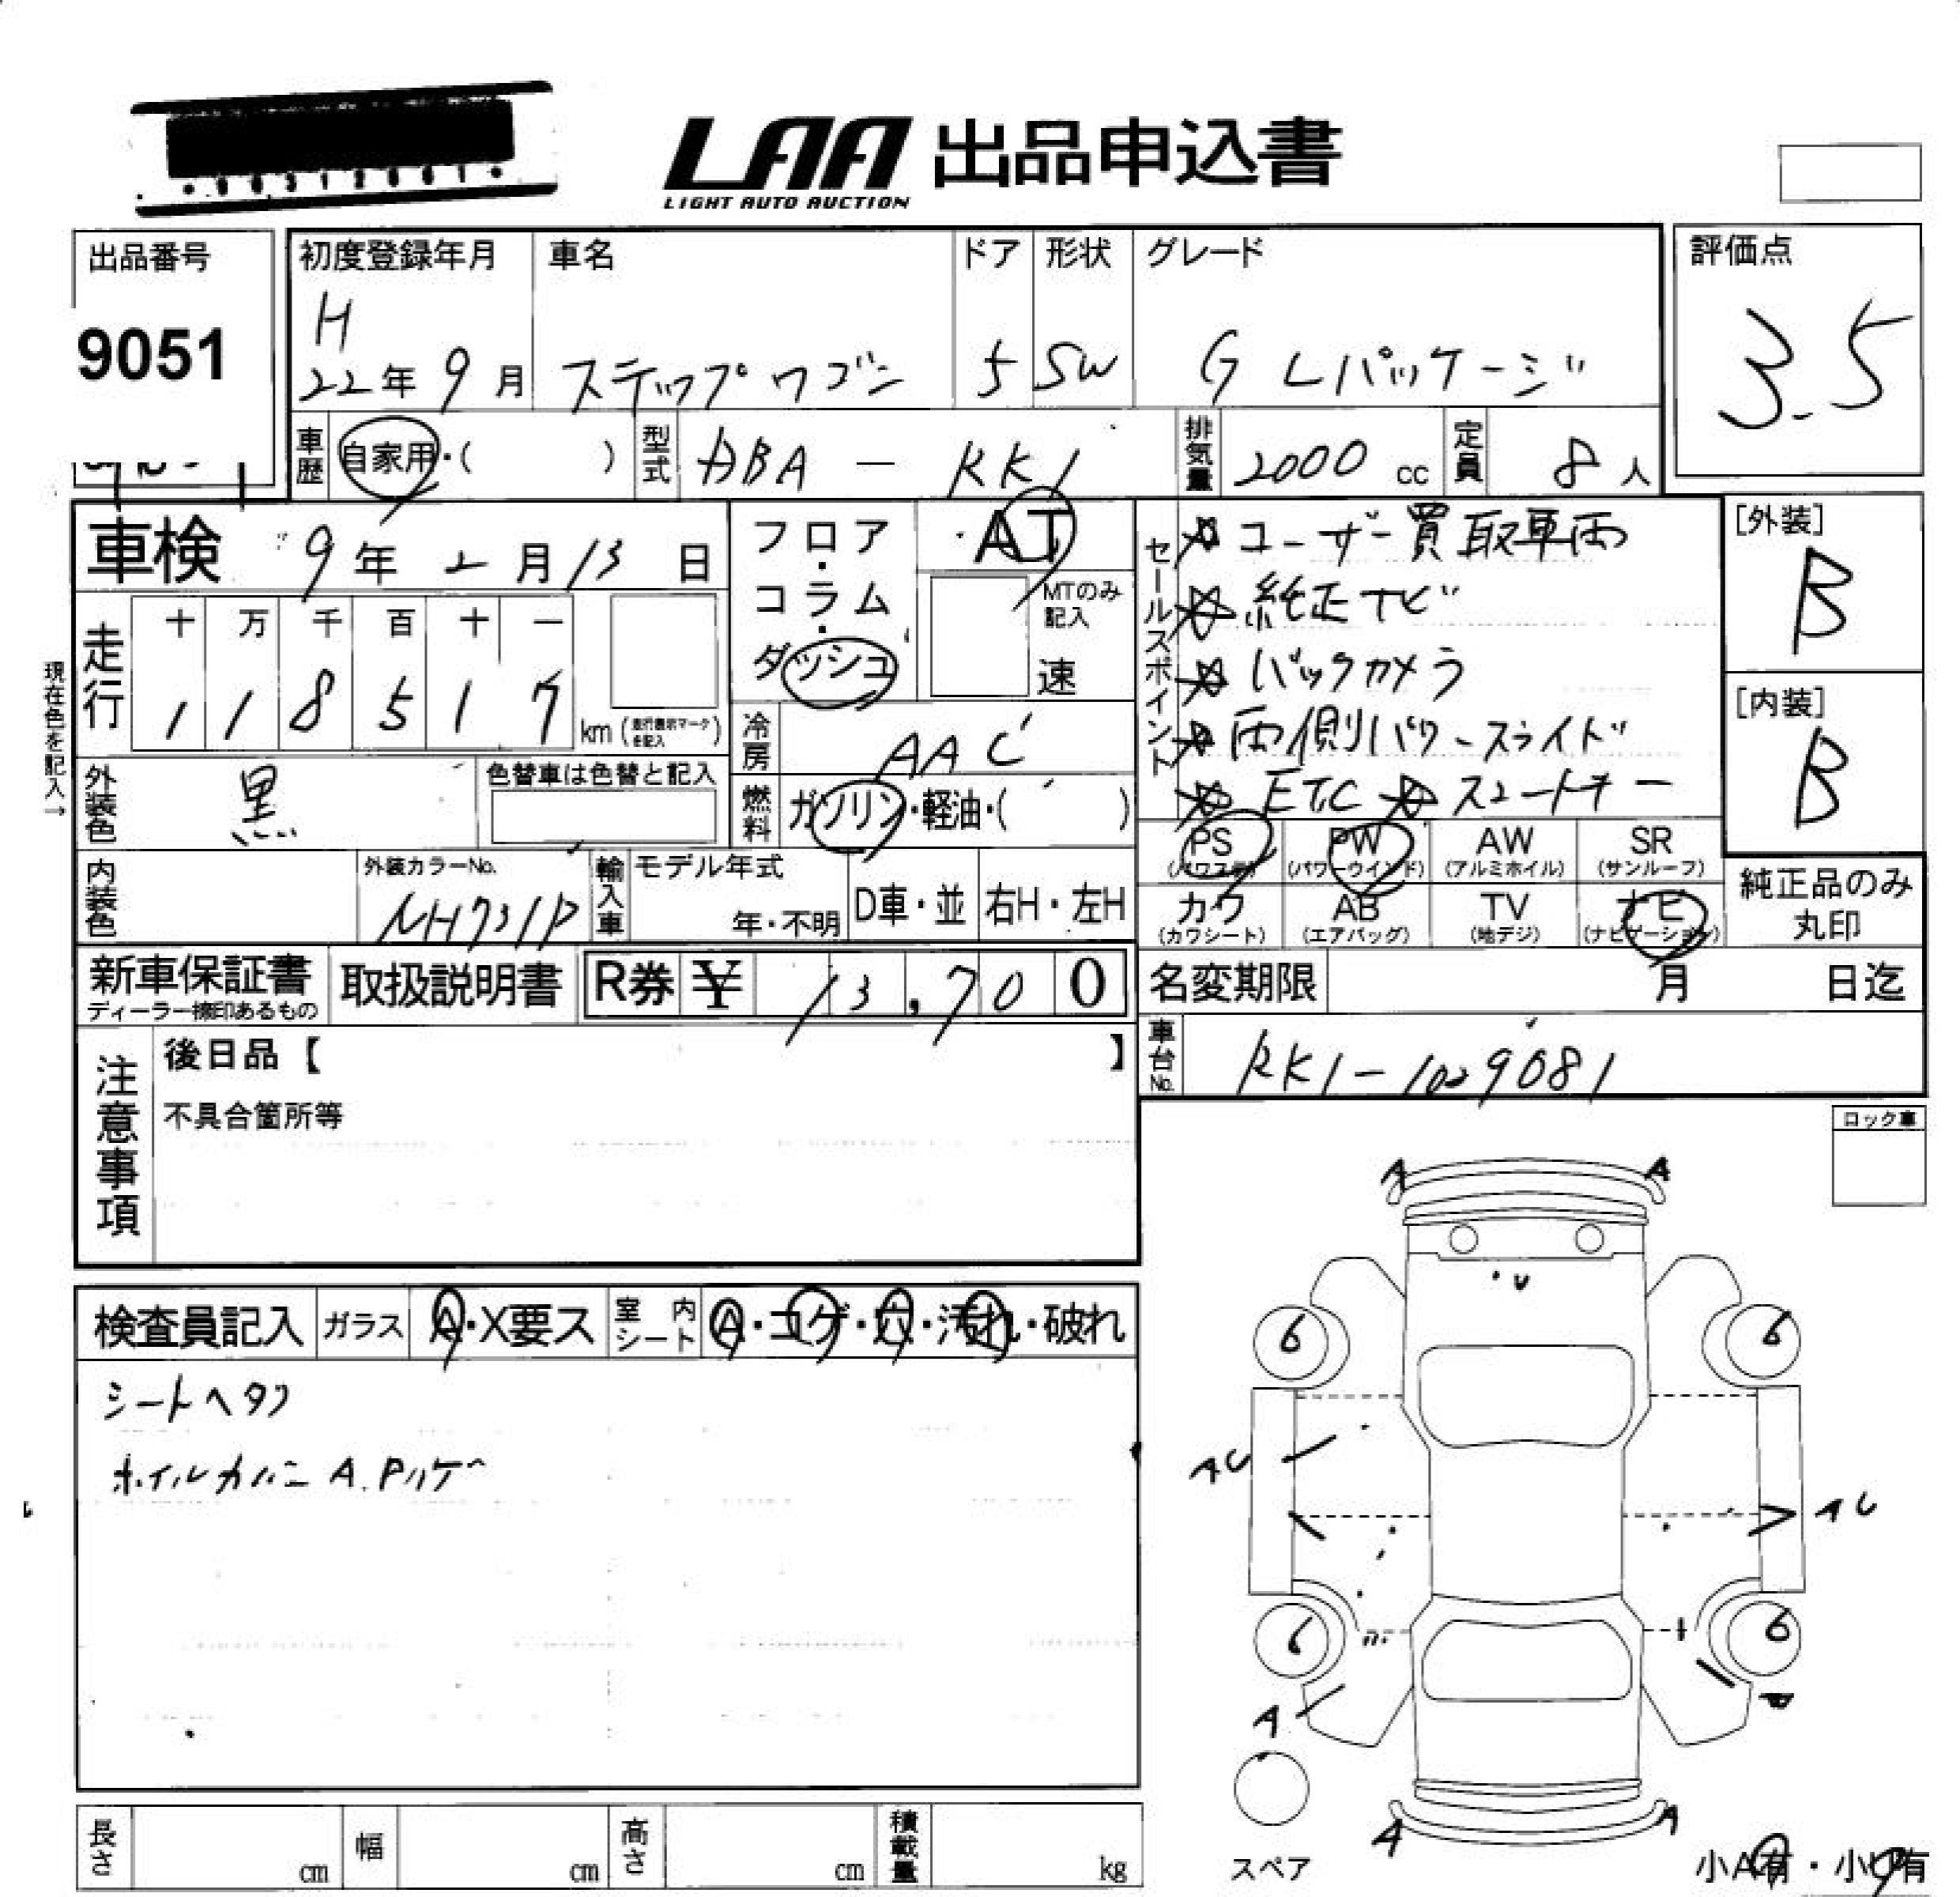 LAA 出品申込書
LIGHT AUTO AUCTION
出品番号
9051
初度登録年月 車名 ドア 形状 グレード 評価点
H
22年 9月 ステップワゴン 5 SW G Lパッケージ 3.5
車歴 自家用・( ) 型式 DBA — RK1 排気量 2000 cc 定員 8人
車検 9年 2月 13日
フロア・コラム・ダッシュ
AT
MTのみ記入
速
走行 十 万 千 百 十 一
1 1 8 5 1 7 km (走行表示マークを記入)
現在色を記入→
外装色 黒 色替車は色替と記入
冷房 AAC
燃料 ガソリン・軽油・( )
内装色 外装カラーNo. NH731P
輸入車 モデル年式 年・不明 D車・並 右H・左H
セールスポイント
ユーザー買取車両
純正ナビ
バックカメラ
両側パワースライド
ETC スマートキー
PS (パワステ) PW (パワーウインド) AW (アルミホイル) SR (サンルーフ)
カワ (カワシート) AB (エアバッグ) TV (地デジ) ナビ (ナビゲーション)
[外装]
B
[内装]
B
純正品のみ
丸印
新車保証書 ディーラー捺印あるもの 取扱説明書 R券 ¥ 13,700
名変期限 月 日迄
車台No. RK1-1029081
注意事項
後日品【 】
不具合箇所等
ロック車
検査員記入 ガラス A・X要ス 室内シート A・コゲ・穴・汚れ・破れ
シートヘタリ
ホイルカバー A.Pハゲ
A A
U
6 6
AU AU
6 6
A
A A
スペア
小A有・小U有
長さ cm 幅 cm 高さ cm 積載量 kg